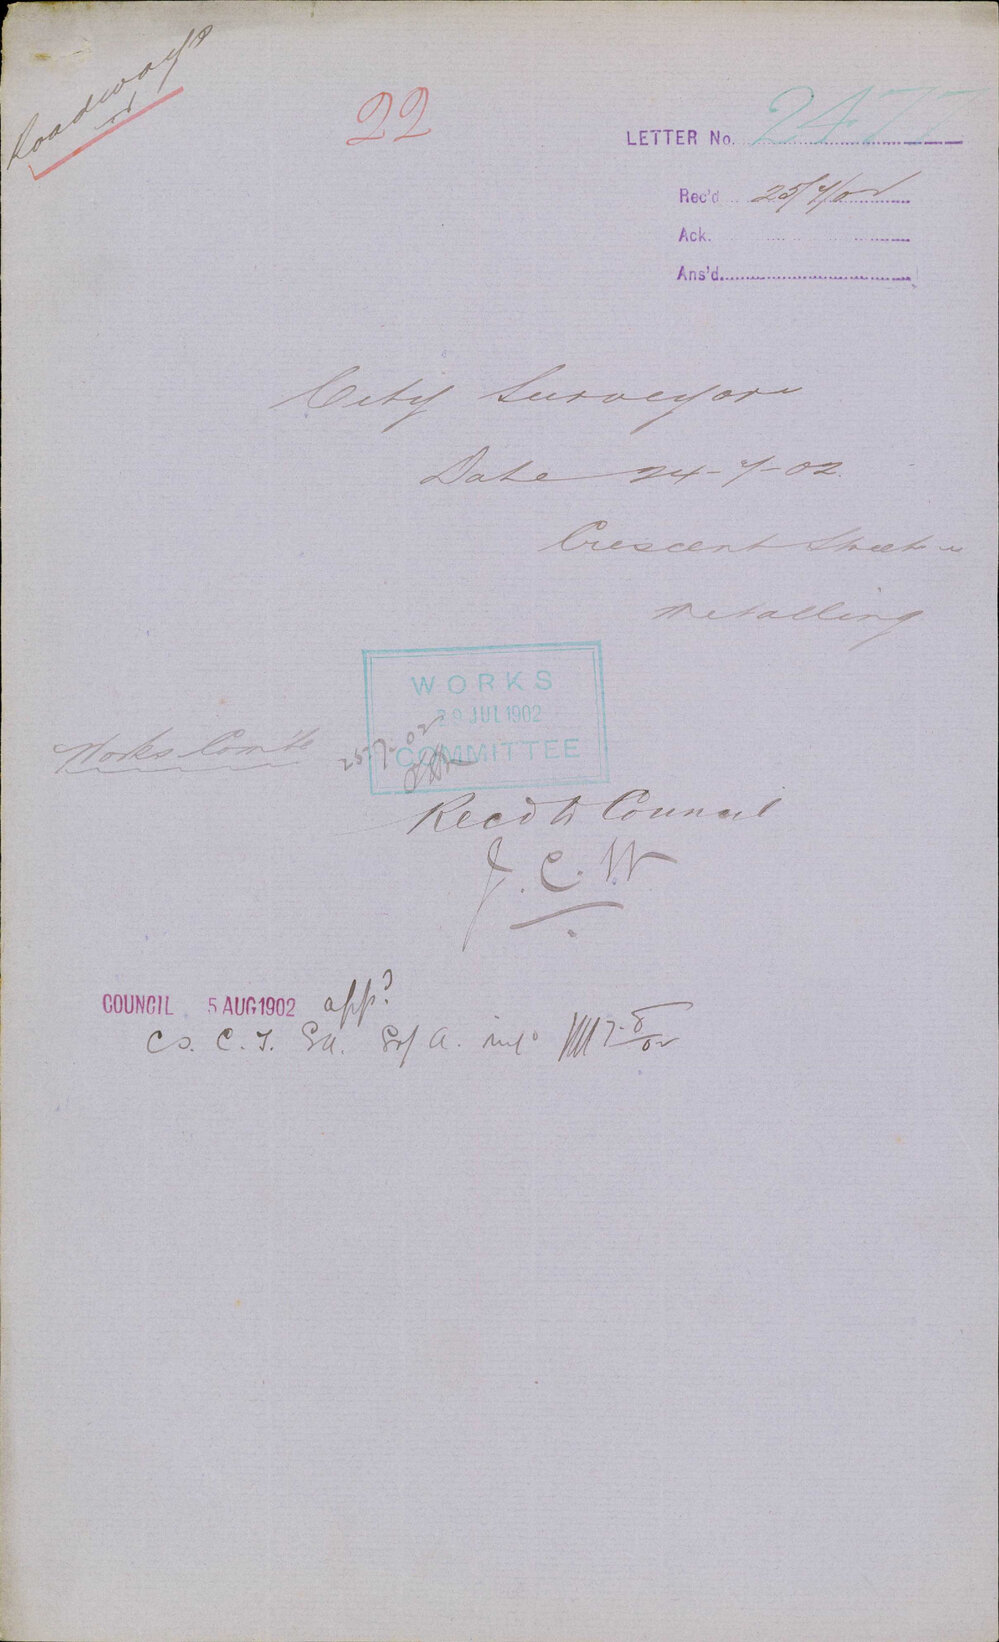 Roadways
22
LETTER No. 2477
Rec'd 25/7/02
Ack.
Ans'd.
City Surveyor
Date 24-7-02.
Crescent Street
Metalling
WORKS
29 JUL 1902
COMMITTEE
Works Com'te 25-7-02
Recd to Council
J. C. W.
COUNCIL 5 AUG 1902 appd
Cs. C. T. 7-8/02